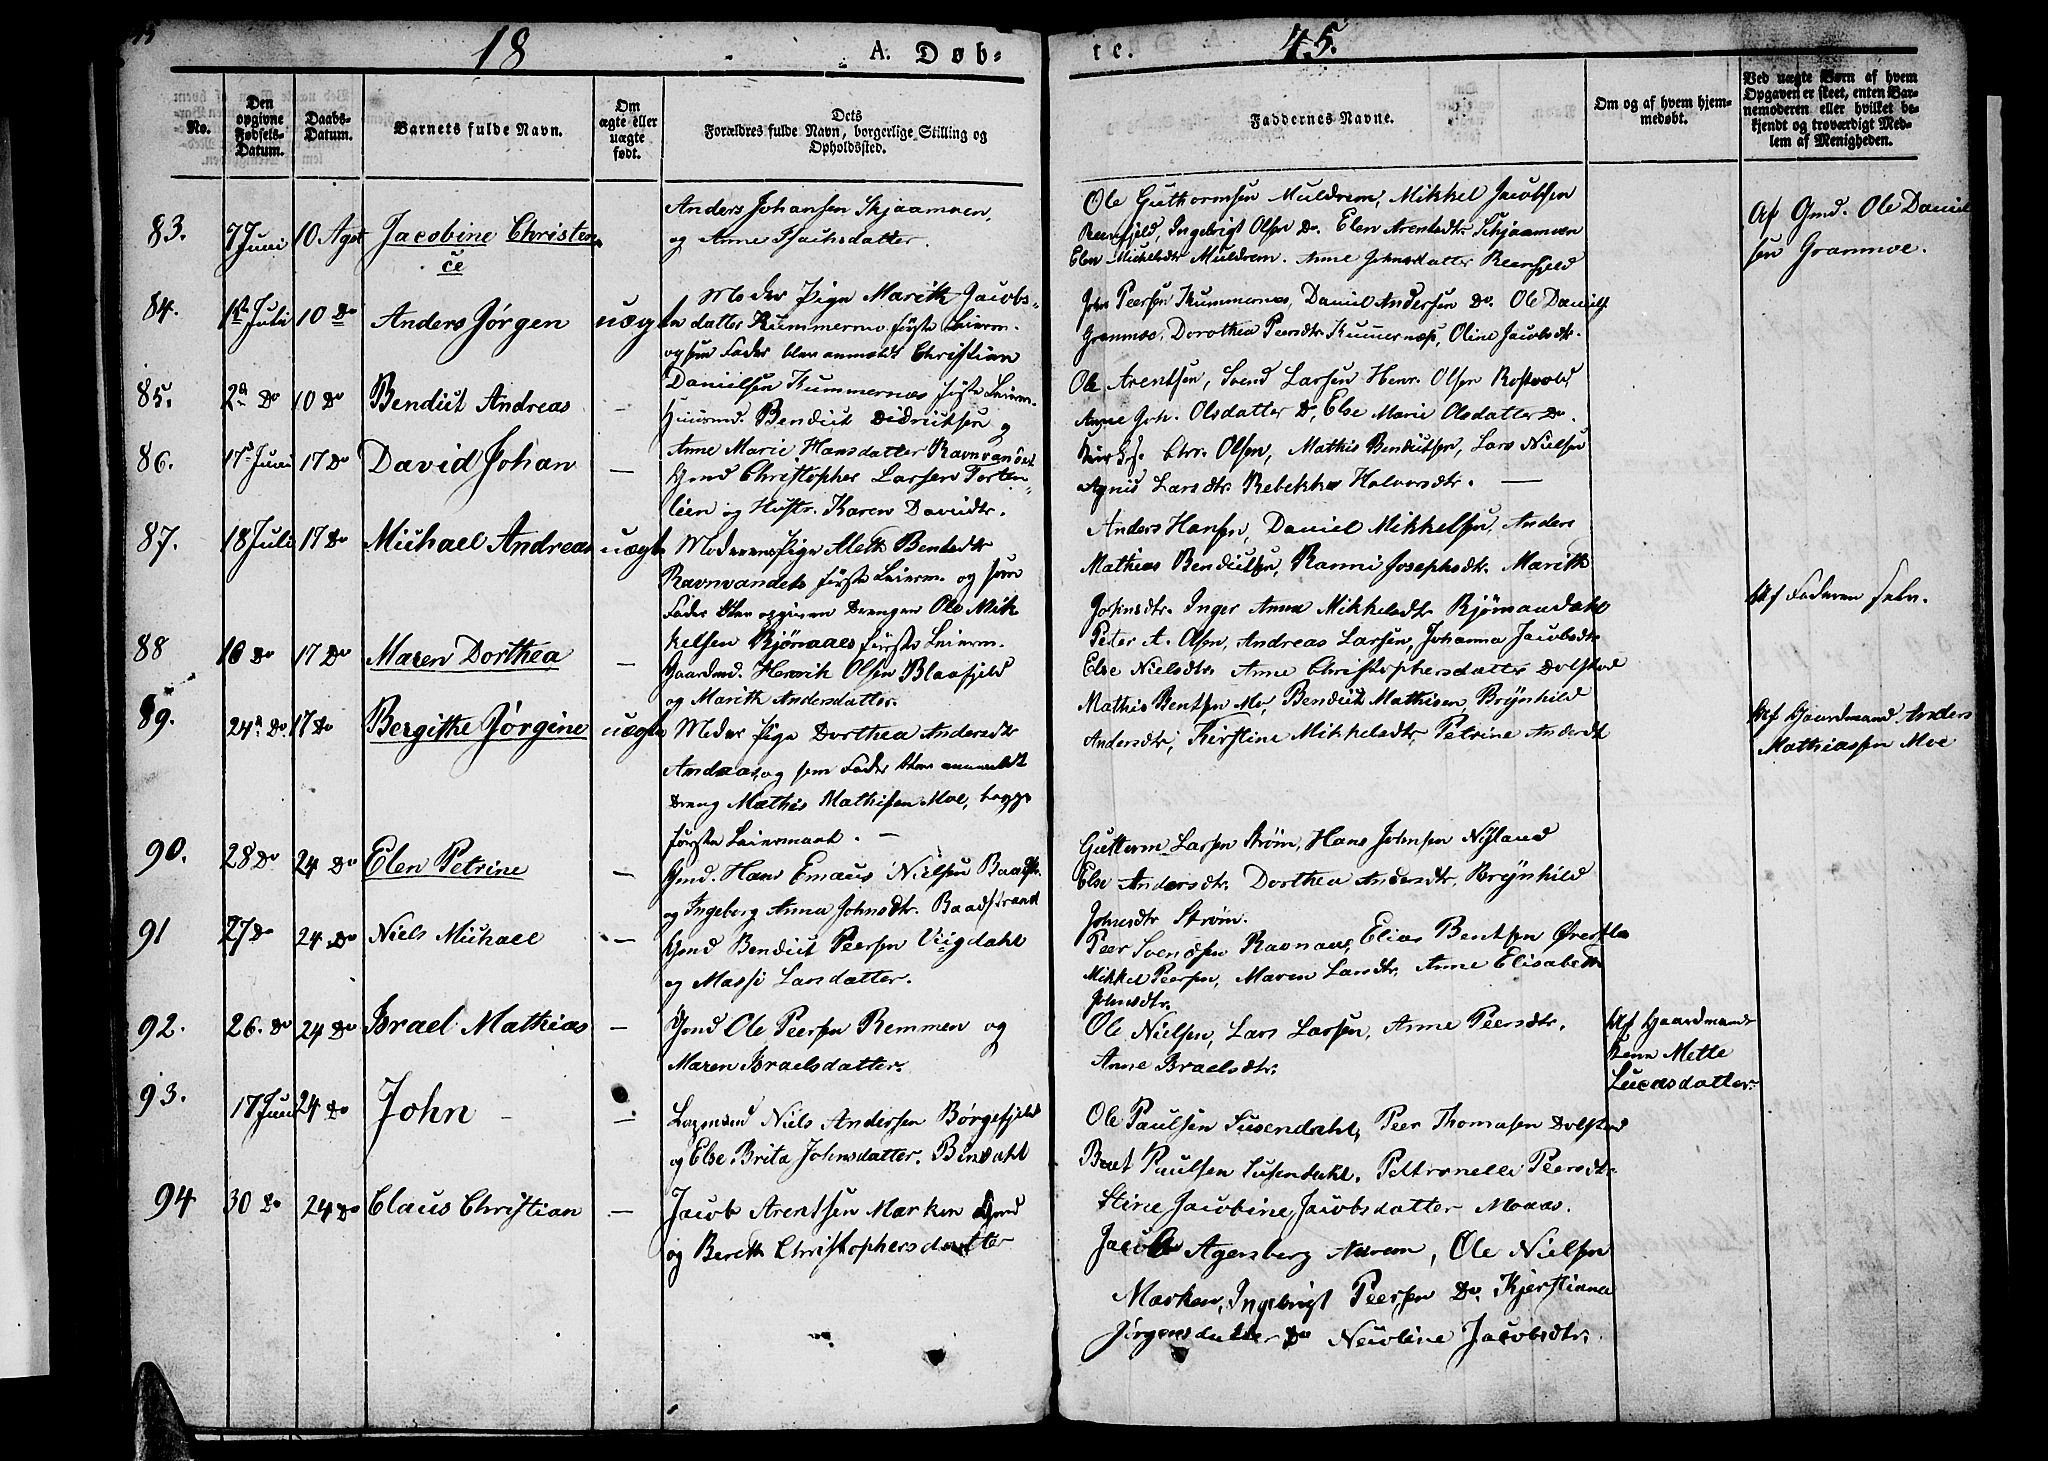 18 A. Døb- te. 45.
No. Den opgivne Fødsels-Datum. Daabs-Datum. Barnets fulde Navn. Om ægte eller uægte født. Dets Forældres fulde Navn, borgerlige Stilling og Opholdssted. Faddernes Navne. Om og af hvem hjemmedøbt. Ved uægte Børn af hvem Opgaven er skeet, enten Barnemoderen eller hvilket bekjendt og troværdigt Medlem af Menigheden.
83. 7 Juni 10 Agst Jacobine Christen
ce
Anders Johansen Skjaamoen,
og Anne Isachsdatter.
Ole Guthormsen Muldrem, Mikkel Jacobsen
Reenfjeld, Ingebrigt Olsen Do. Elen Arentsdtr. Skjaamoen
Elen Mikelsdtr Muldrem. Anne Johnsdatter Reenfjeld
Af Gmd. Ole Daniel
sen Granmoe.
84. 1st Juli 10 Do Anders Jørgen uægt
Moder Pige Marith Jacobs-
datter Kummermo første Leierm.
og som Fader blev anmeldt Christian
Danielsen Kummernæs første Leierm.
John Peersen Kummernæs, Daniel Andersen Do. Ole Daniels
Granmoe, Dorothea Peersdtr. Kummernæs, Oline Jacobsdtr.
85. 2d Do 10 Do Bendict Andreas —
Huusmd. Bendict Didriksen og
Anne Marie Hansdatter Ravnvanøret
Ole Arentsen, Svend Larsen Henr. Olsen Rosvold
Anne Joh. Olsdatter Do, Else Marie Olsdatter Do.
86. 17 Juni 17 Do David Johan —
Gmd Christopher Larsen Forten-
lien og Hustr. Karen Davidtr.
Chr. Olsen, Mathis Bendictsen, Lars Nielsen
Agnis Larsdtr. Rebekka Halvorsdtr. —
87. 18 Juli 17 Do Michael Andreas uægt
Moderen Pige Aleth Bentsdtr
Ravnvandets første Leierm. og som
Fader blev opgiven Drengen Ole Mik
kelsen Bjønaaes første Leierm.
Anders Hansen, Daniel Mikkelsen, Anders
Mathias Bendictsen, Ranni Josephsdtr. Marith
Johnsdtr. Inger Anna Mikkelsdtr Bjønaadahl
Af Faderen selv.
88 16 Do 17 Do Maren Dorthea —
Gaardmd. Henrik Olsen Blaafjeld
og Marith Andersdatter.
Peter A. Olsen, Andreas Larsen, Johanna Jacobsdtr
Else Nielsdtr. Anne Christophersdatter Dolstad
89. 24d Do. 17 Do Bergitke Jørgine uægt
Moder Pige Dorthea Andersdtr
Andraas, og som Fader blev anmeldt
Dreng Mathis Mathisen Moe, begge
første Leiermaal. —
Mathis Bentsen Moe, Bendict Mathisen, Brÿnhild
Andersdtr, Kirstine Mikkelsdtr, Petrine Andersdt
Af Gaardmand Anders
Mathiassen Moe
90. 28 Do 24 Do Elen Petrine —
Gmd. Hans Emaus Nielsen Baadstr.
og Ingeborg Anna Johnsdtr. Baadstrand
Guttorm Larsen Strøm, Hans Johnsen Nÿland
Else Andersdtr. Dorthea Andersdtr, Brÿnhild
Johnsdtr Strøm.
91 27 Do 24 Do Niels Michael —
Gmd Bendict Peersen Viigdahl
og Massi Larsdatter.
Peer Svendsen Ravnaae, Elias Bentsen
Mikkel Peersen, Maren Larsdtr. Anne Elisabeth
Johnsdtr.
92. 26. Do 24 Do Israel Mathias —
Gmd Ole Peersen Remmen og
Maren Israelsdatter.
Ole Nielsen, Lars Larsen, Anne Peersdtr.
Anne Israelsdtr.
Af Gaardmands
Kone Mette
Lucasdatter.
93. 17 Juni 24 Do John —
Lapmand Niels Andersen Børgefjeld
og Else Brita Johnsdatter. Bindahl
Ole Paulsen Susendahl, Peer Thomasen Dolstad
Beret Paulsen Susendahl. Peltronelle Peersdtr
Stine Jacobine Jacobsdatter Moaas.
94 30 Do 24 Do Claus Christian —
Jacob Arentsen Marken Gmd
og Bereth Christophersdatter
Jacob Agersberg, Ole Nielsen
Marken, Ingebrigt Peersen Do. Kjerstianna
Jørgensdatter Do Nicoline Jacobsdtr.